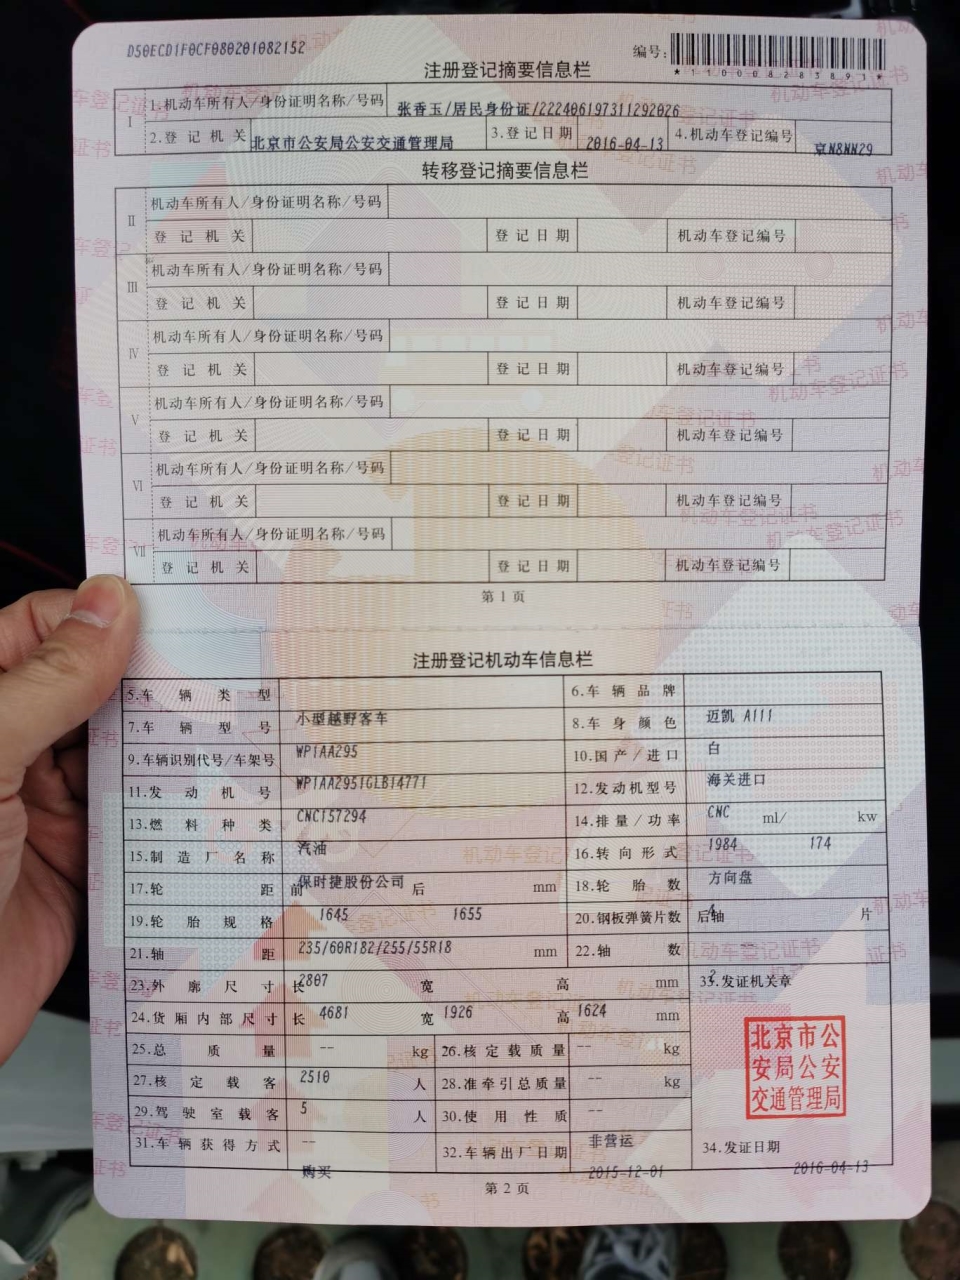 D50ECD1F0CF080201082152
编号:
*110008283891*
注册登记摘要信息栏
I
1.机动车所有人/身份证明名称/号码 张香玉/居民身份证/222406197311292026
2.登记机关 北京市公安局公安交通管理局 3.登记日期 2016-04-13 4.机动车登记编号 京N8NN29
转移登记摘要信息栏
II
机动车所有人/身份证明名称/号码
登记机关 登记日期 机动车登记编号
III
机动车所有人/身份证明名称/号码
登记机关 登记日期 机动车登记编号
IV
机动车所有人/身份证明名称/号码
登记机关 登记日期 机动车登记编号
V
机动车所有人/身份证明名称/号码
登记机关 登记日期 机动车登记编号
VI
机动车所有人/身份证明名称/号码
登记机关 登记日期 机动车登记编号
VII
机动车所有人/身份证明名称/号码
登记机关 登记日期 机动车登记编号
第1页
注册登记机动车信息栏
5.车辆类型 小型越野客车 6.车辆品牌 迈凯 A111
7.车辆型号 WP1AA295 8.车身颜色 白
9.车辆识别代号/车架号 WP1AA2951GLB14771 10.国产/进口 海关进口
11.发动机号 CNC157294 12.发动机型号 CNC
13.燃料种类 汽油 14.排量/功率 1984 ml/ 174 kw
15.制造厂名称 保时捷股份公司 16.转向形式 方向盘
17.轮距 前 1645 后 1655 mm 18.轮胎数 4
19.轮胎规格 235/60R182/255/55R18 20.钢板弹簧片数 后轴 片
21.轴距 2807 mm 22.轴数 2
23.外廓尺寸 长 4681 宽 1926 高 1624 mm 33.发证机关章
24.货厢内部尺寸 长 -- 宽 高 mm
北京市公
安局公安
交通管理局
25.总质量 2510 kg 26.核定载质量 -- kg
27.核定载客 5 人 28.准牵引总质量 -- kg
29.驾驶室载客 -- 人 30.使用性质 非营运
31.车辆获得方式 购买 32.车辆出厂日期 2015-12-01 34.发证日期 2016-04-13
第2页